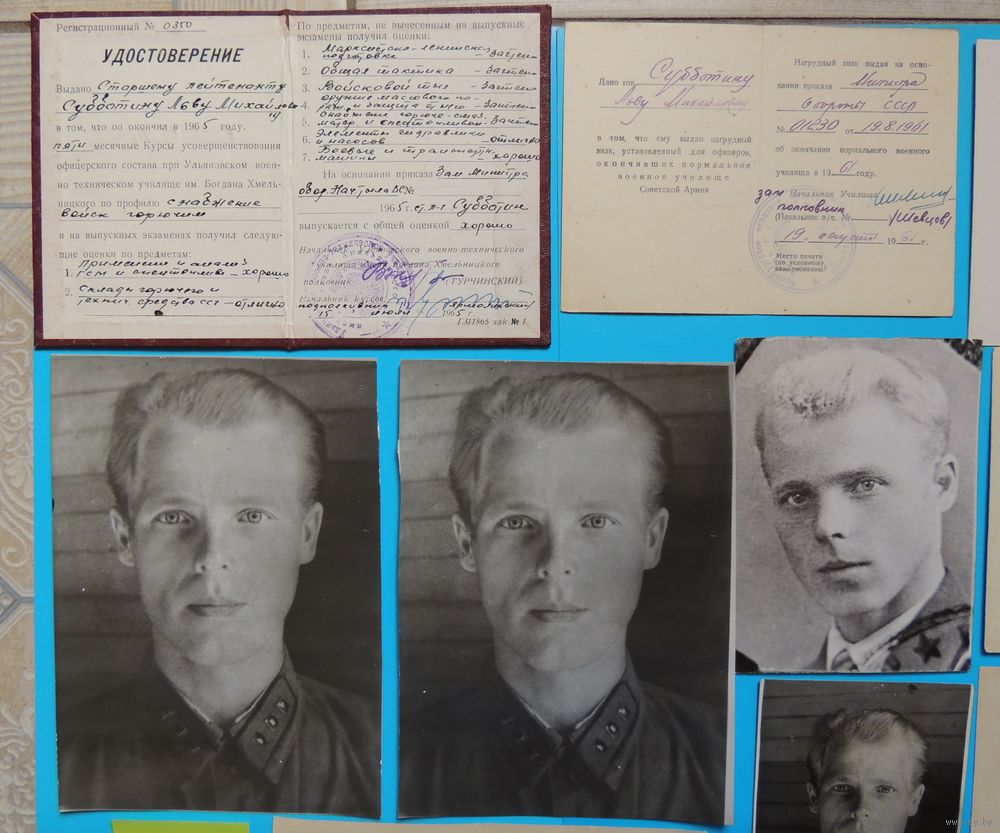 Регистрационный № 0350
УДОСТОВЕРЕНИЕ
Выдано Старшему лейтенанту
Субботину Льву Михайлови
чу
в том, что он окончил в 1965 году.
пяти месячные Курсы усовершенствования
офицерского состава при Ульяновском воен-
но техническом училище им. Богдана Хмель-
ницкого по профилю снабжение
войск горючим
и на выпускных экзаменах получил следую-
щие оценки по предметам:
1. Применение и анализ
Гсм и спецтоплив — хорошо
2. Склады горючего и
технич. средства ссг — отлично
По предметам, не вынесенным на выпускные
экзамены получил оценки:
1. Марксистско-ленинская
подготовка — Зачтен
2. Общая тактика — Зачтен
3. Войсковой тыл — Зачтен
4. оружие массового по-
и защита от него — Зачтен
5. Снабжение горюче-смаз.
матер. и спецтопливом — Зачтен
6. Элементы гидравлики
и насосов — отлично
7. Боевые и транспортн.
машины — хорошо
На основании приказа Зам Министра
№
1965 г. ст. л-т Субботин
выпускается с общей оценкой хорошо
Начальник Ульяновского военно-технического
училища им. Богдана Хмельницкого
полковник (ТУРЧИНСКИЙ)
Начальник курсов
подполковник
15 июля 1965 г.
ГЗ11865 зак. № 1
Дано тов. Субботину
Льву Михайловичу
в том, что ему выдан нагрудный
знак, установленный для офицеров,
окончивших нормальное
военное училище
Советской Армии
Нагрудный знак выдан на осно-
вании приказа Министра
Обороны СССР
№ 01230 от 19.8.1961
об окончании нормального военного
училища в 1961 году.
зам Начальник Училища
полковник
(Начальник в/ч. № (Шевцов)
19 августа 1961 г.
Место печати
(по условному
наименованию)
www.ay.by